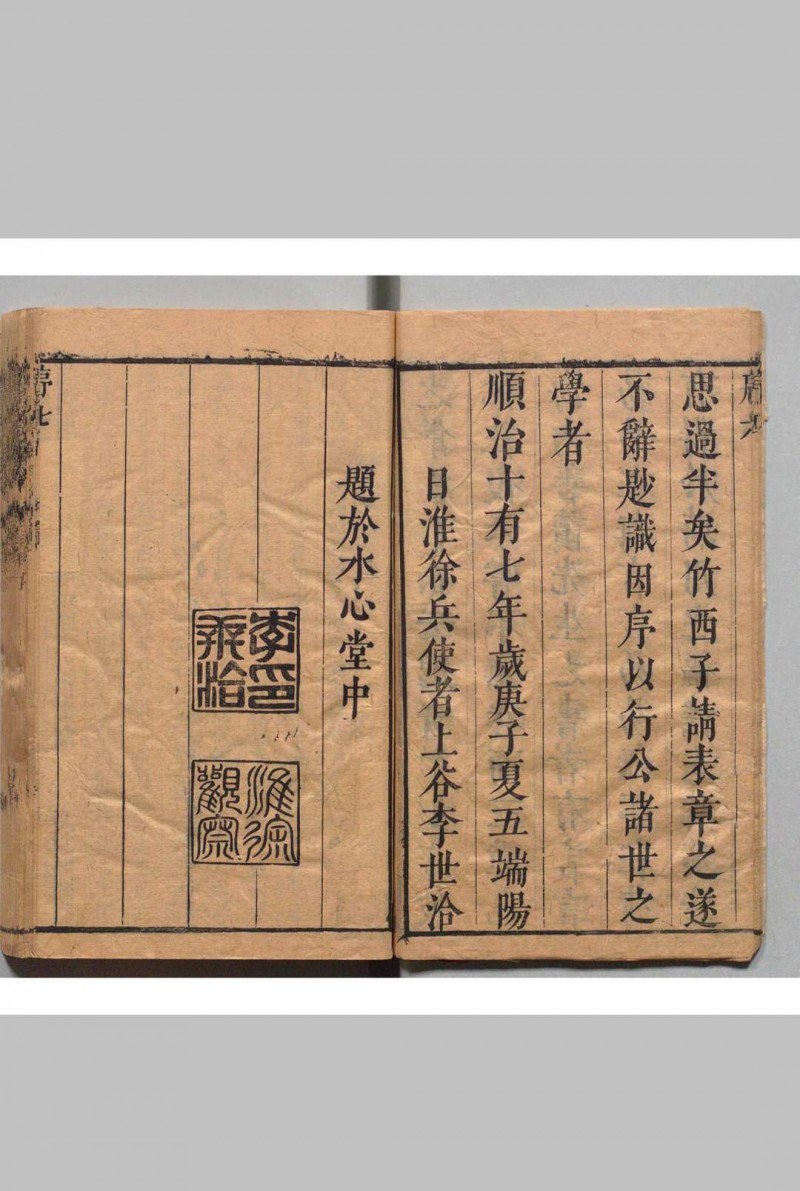 序六
思過半矣竹西子請表章之遂
不辭尟識因序以行公諸世之
學者
順治十有七年歲庚子夏五端陽
日淮徐兵使者上谷李世洽
題於水心堂中
李印
世洽
淮徐
觀察
序七